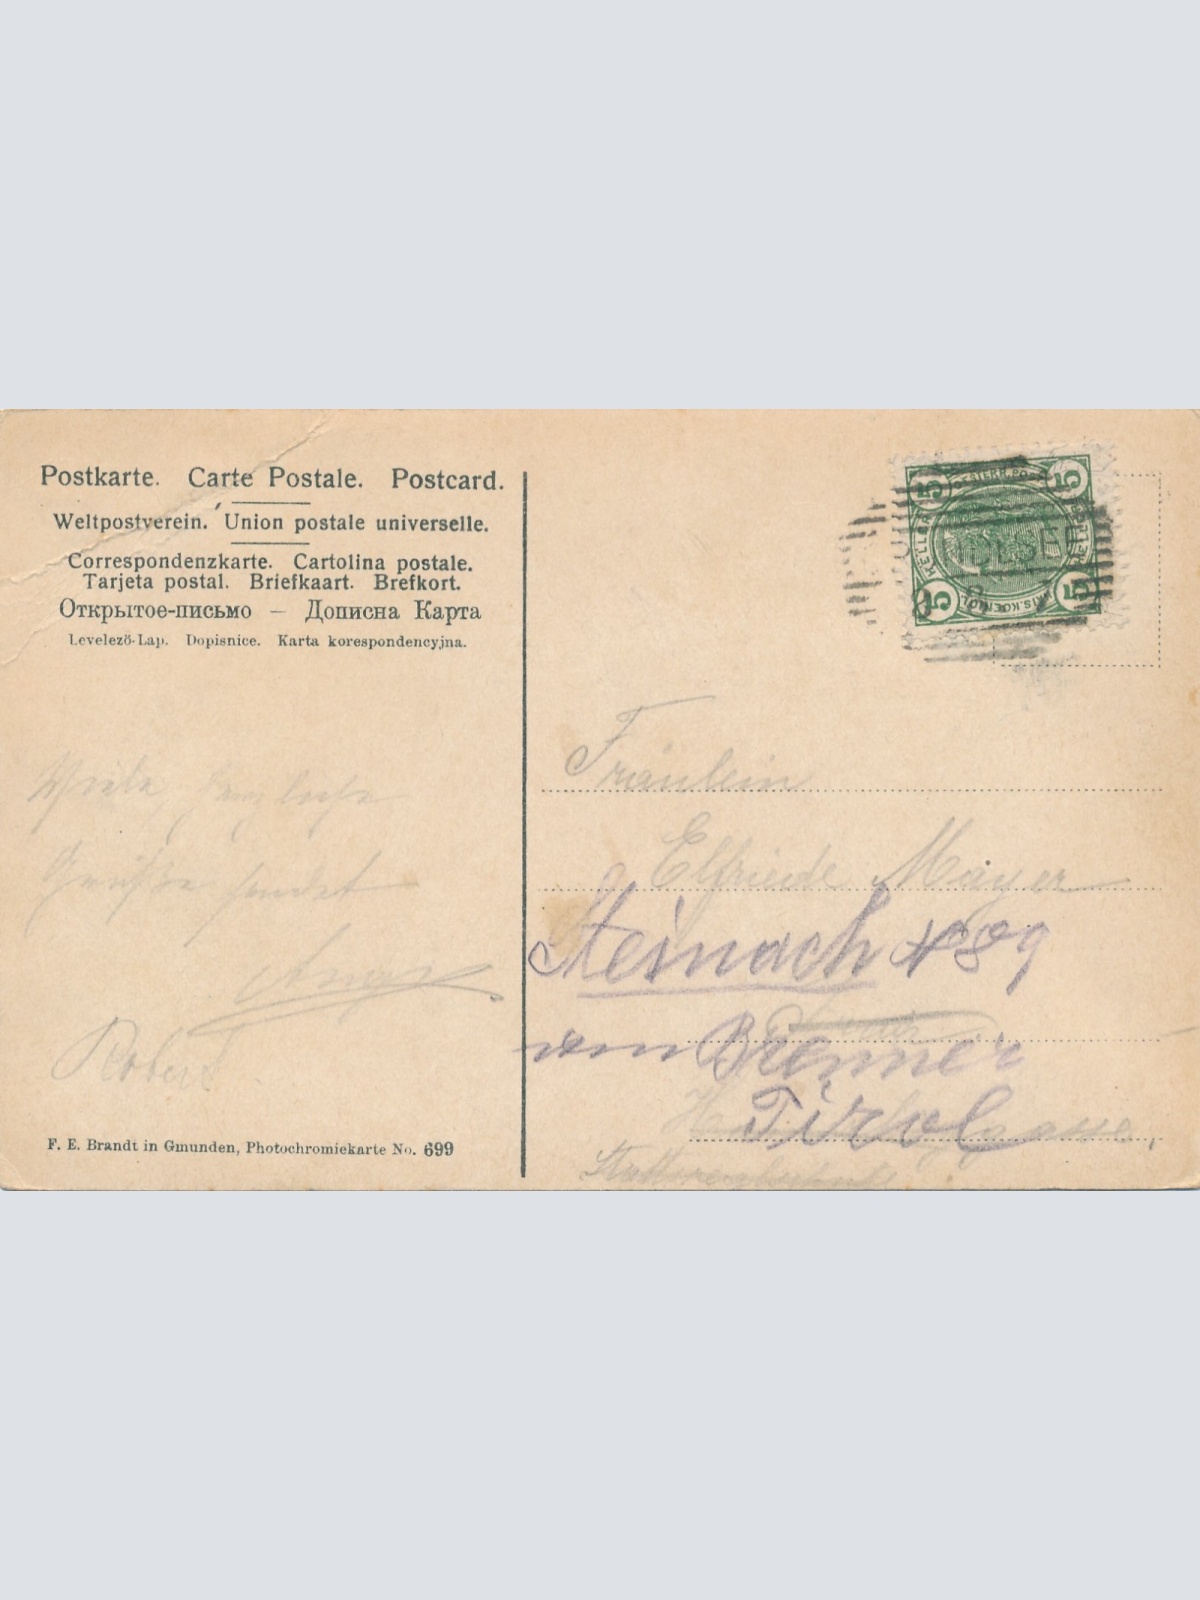 Postkarte. Carte Postale. Postcard.
Weltpostverein. Union postale universelle.
Correspondenzkarte. Cartolina postale.
Tarjeta postal. Briefkaart. Brefkort.
Открытое-письмо — Дописна Карта
Levelező-Lap. Dopisnice. Karta korespondencyjna.
Viele herzliche
Grüße sendet
Robert
F. E. Brandt in Gmunden, Photochromiekarte No. 699
5 5
5 5
Fräulein
Elfriede Mayer
Steinach 89
am Brenner
Tirol